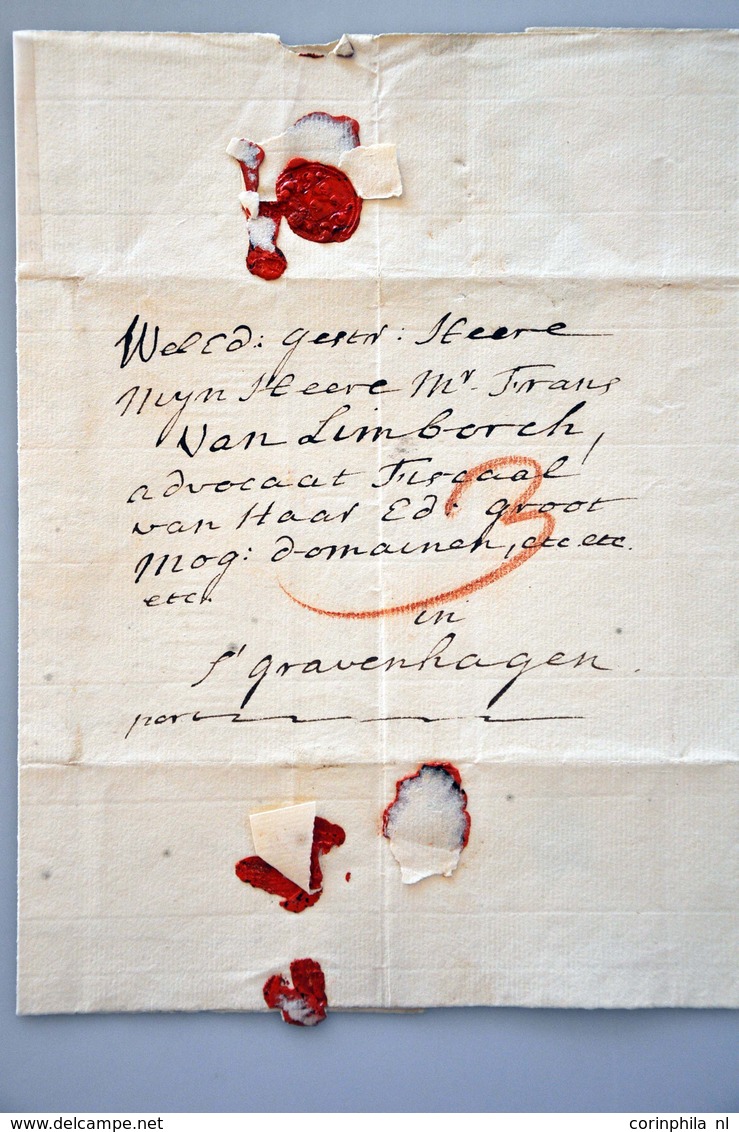 WelEd: gestr: Heere
Mijn Heere Mr. Frans
Van Limborch,
advocaat Fiscaal
van Haar Ed: groot
Mog: domainen, etc etc.
etc.
in
s' gravenhagen.
port
3
www.delcampe.net
corinphila nl